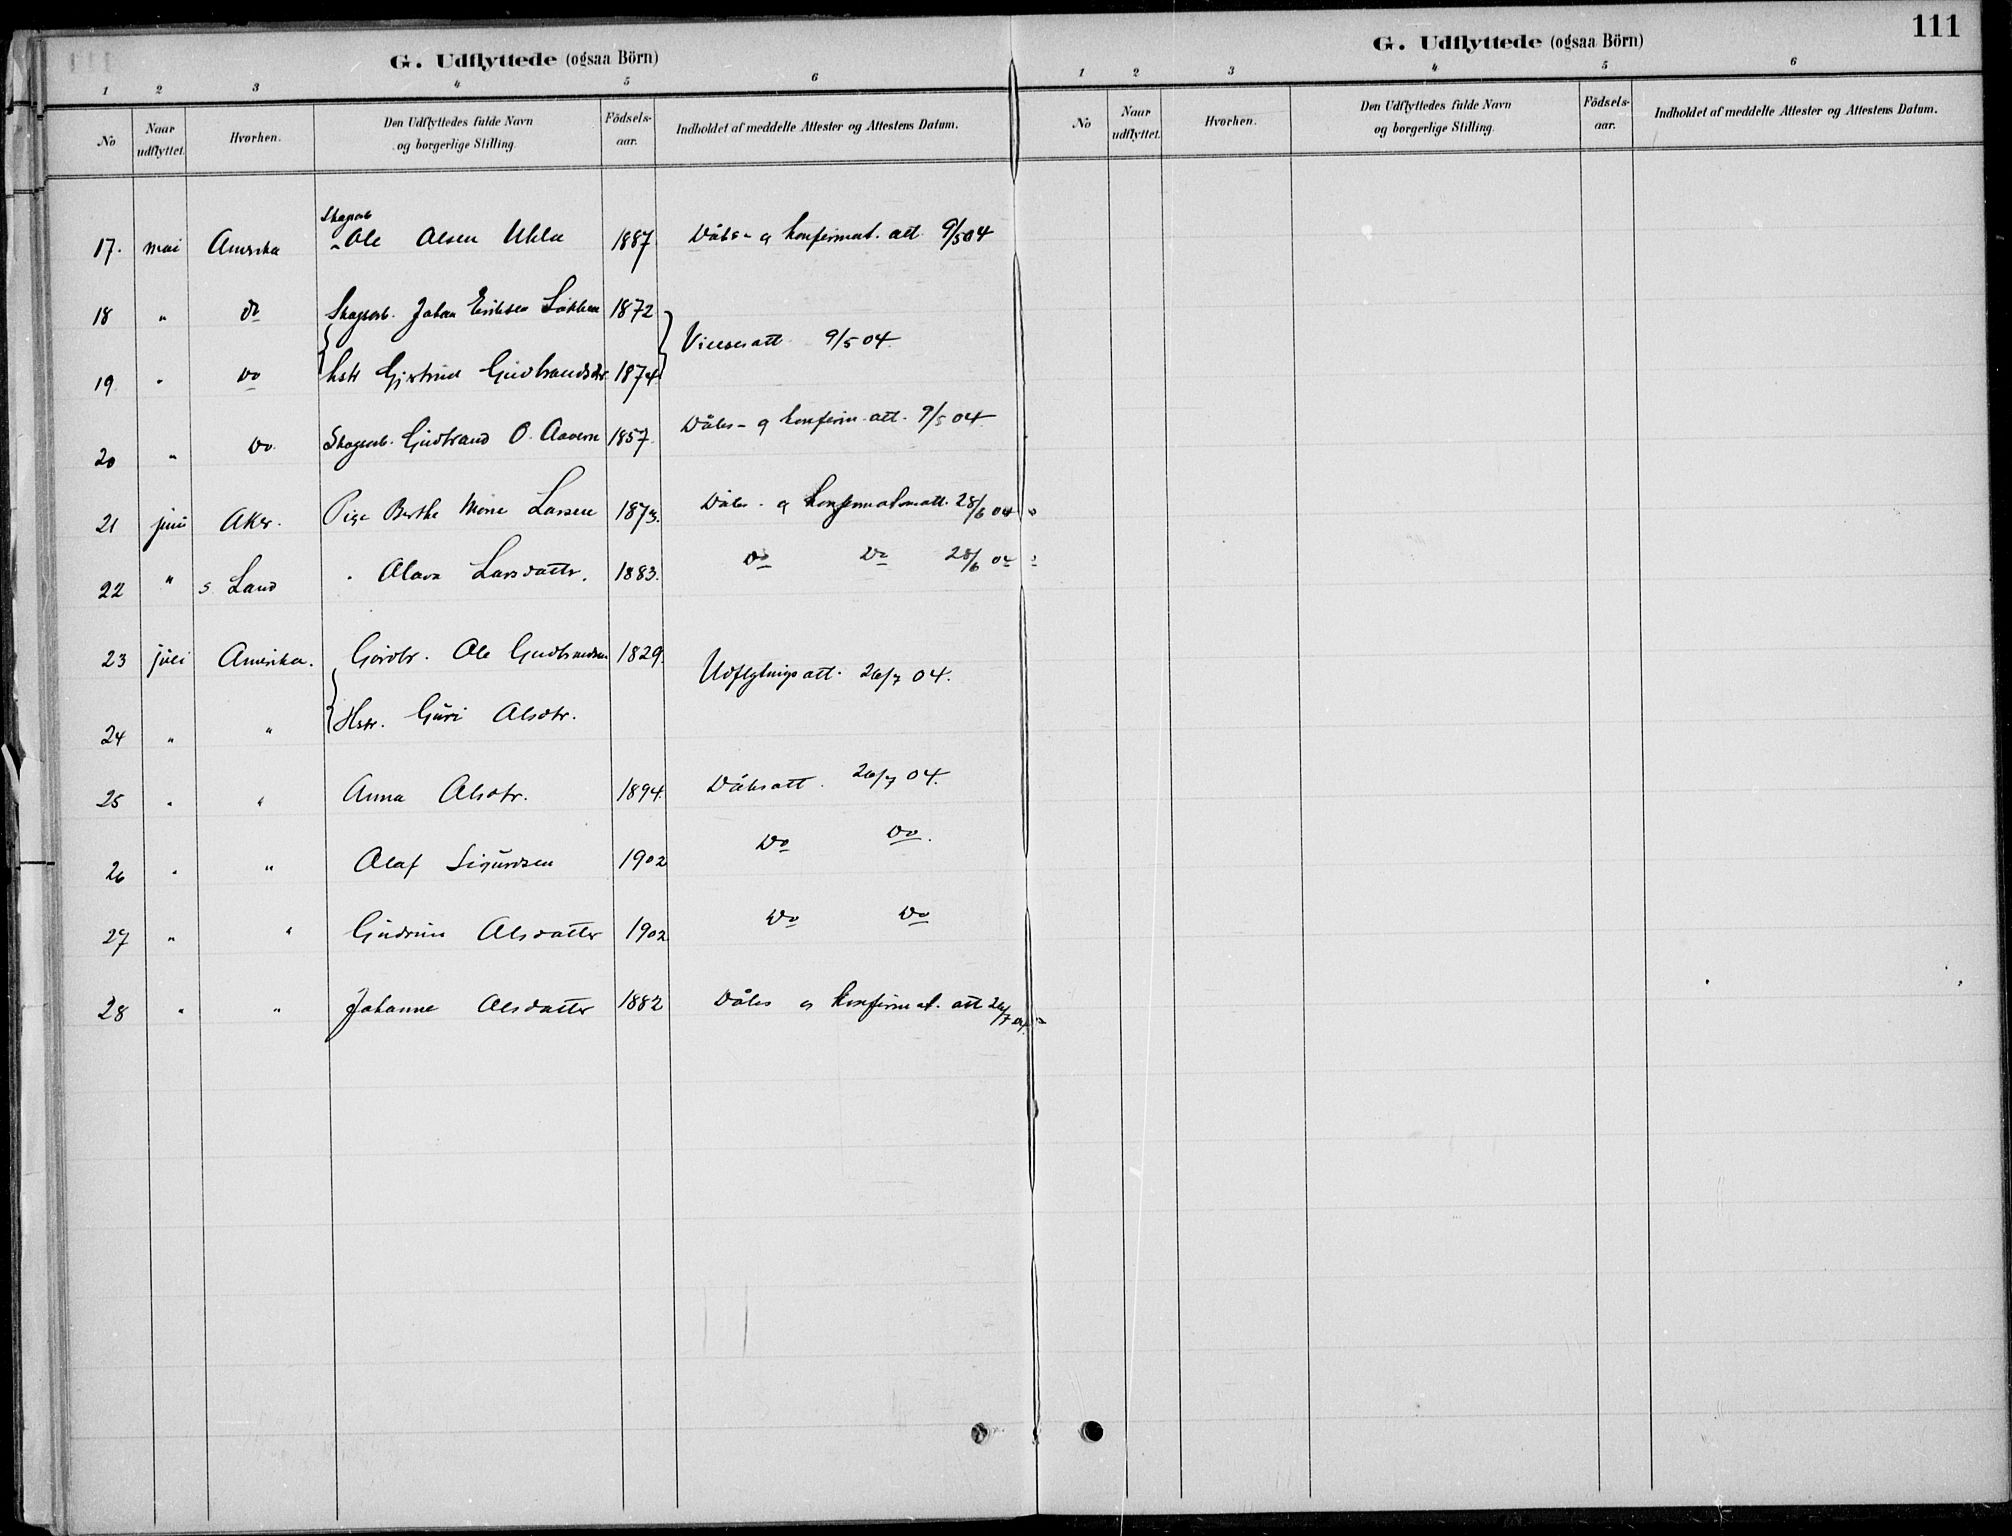 G. Udflyttede (ogsaa Börn)
1 2 3 4 5 6
No Naar udflyttet. Hvorhen. Den Udflyttedes fulde Navn og borgerlige Stilling. Födsels-aar. Indholdet af meddelte Attester og Attestens Datum.
Skogarb
17. mai Amerika " Ole Olsen Ukla 1887 Dåbs- og konfirmat. att. 9/5 04
18 " do Skogarb. Johan Eriksen Løkken 1872
Vielsesatt. 9/5 04.
19 " do hstr Gjertrud Gudbrandsdtr 1874
20 " do. Skogarb. Gudbrand O. 1857. Dåbs- og konfirm. att. 9/5 04
21 juni Aker. Pige Berthe Larsen 1873. Dåbs- og konfirmationsatt. 28/6 04
22 " S. Land " Olava Larsdatter. 1883. do do 28/6 04
23 juli Amerika. Gårdbr. Ole Gudbrandsen 1829.
Udflytningsatt. 26/7 04.
24 " " Hstr. Guri Olsdtr.
25 " " Anna Olsdtr. 1894. Dåbsatt. 26/7 04.
26 " " Olaf Sigurdsen 1902 do do.
27 " " Gudrun Olsdatter 1902 do do
28 " " Johanne Olsdatter 1882 Dåbs og konfirmat. att 26/7 04.
111
G. Udflyttede (ogsaa Börn)
1 2 3 4 5 6
No Naar udflyttet. Hvorhen. Den Udflyttedes fulde Navn og borgerlige Stilling. Födsels-aar. Indholdet af meddelte Attester og Attestens Datum.